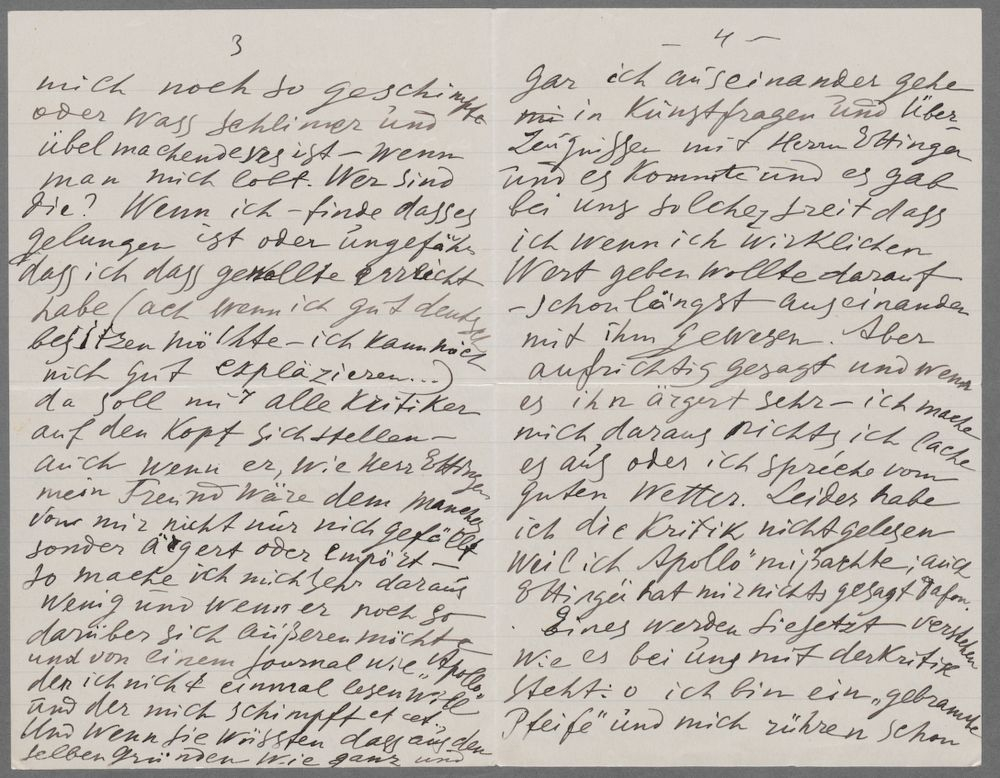 3
mich noch so geschimpfte
oder wass schlimer und
übelmachenderes ist – wenn
man mich lobt. Wer sind
die? Wenn ich – finde dasses
gelungen ist oder ungefähr
dass ich dass gewollte erreicht
habe (ach wenn ich gut deutsch
besitzen möchte – ich kann noch
nich gut expläzieren...)
da soll mir alle Kritiker
auf den Kopf sich stellen –
auch wenn er, wie Herr Ettinger
mein Freund wäre dem manches
von mir nicht nur nich gefällt
sonder ärgert oder enpört –
so mache ich mich sehr daraus
wenig und wenn er noch so
darüber sich äußeren möchte
und von einem Journal wie "Apollo"
den ich nicht einmal lesen will
und der mich schimpft et cet.
Und wenn Sie wüssten dass aus den
selben gründen wie ganz und
– 4 –
gar ich auseinander gehe
in Künstfragen und Über
zeugnissen mit Herrn Ettinger
und es konnte und es gab
bei uns solche streit dass
ich wenn ich wirklichen
Wert geben wollte darauf
– schon längst auseinander
mit ihm gewesen. Aber
aufrichtig gesagt und wenn
es ihn ärgert sehr – ich mache
mich daraus nichts ich lache
es aus oder ich spreche vom
guten Wetter. Leider habe
ich die Kritik nicht gelesen
weil ich "Apollo" mißachte; auch
Ettinger hat mir nichts gesagt dafon.
Eines werden Sie jetzt verstehen
wie es bei uns mit der Kritik
steht: o ich bin ein "gebrannte
Pfeife" und mich rühren schon